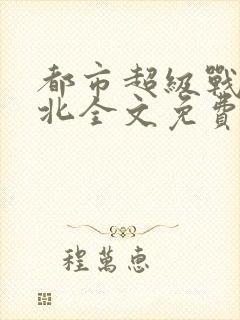 都市超級戰
北全文免費
程萬惠